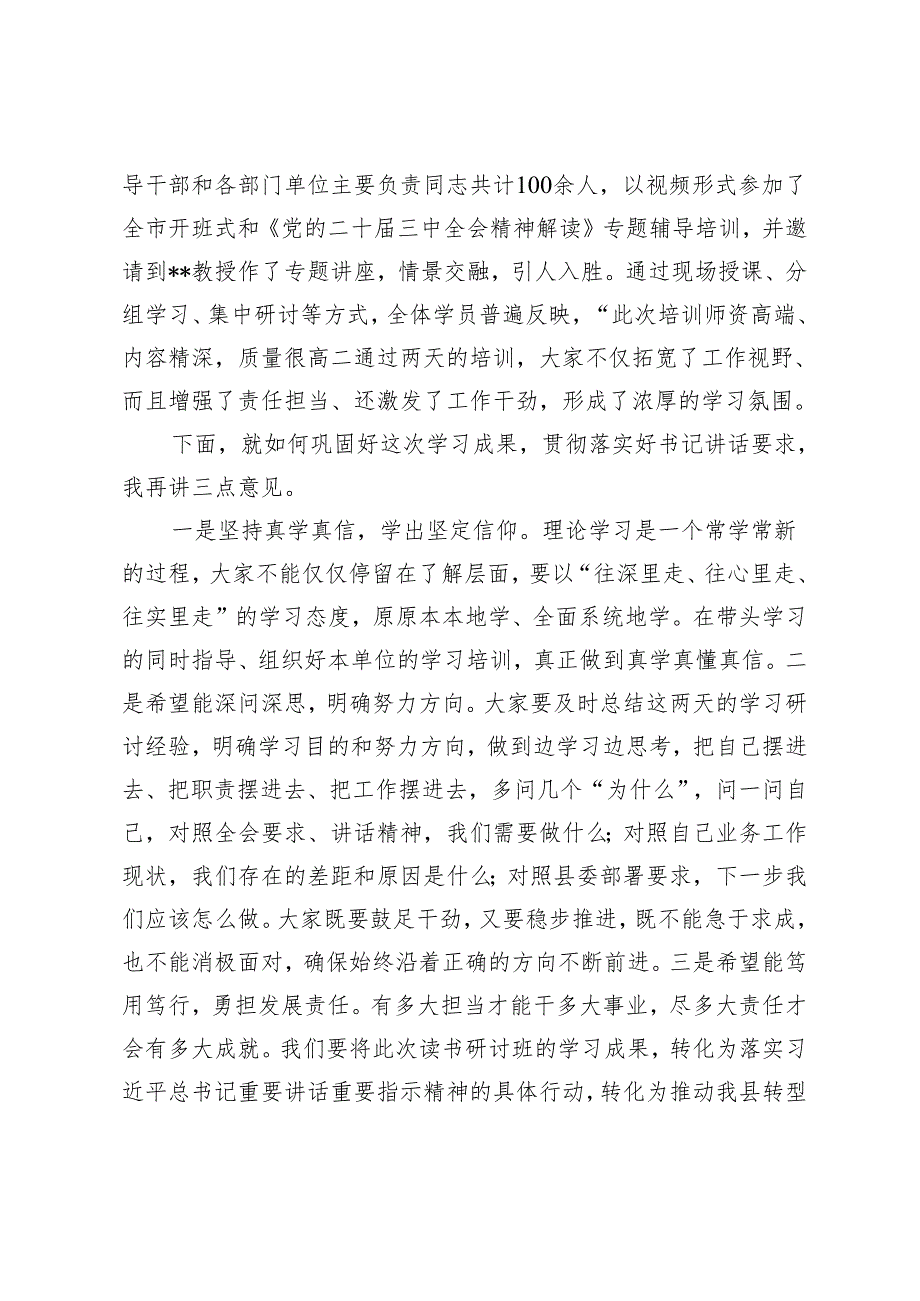 导干部和各部门单位主要负责同志共计100余人，以视频形式参加了
全市开班式和《党的二十届三中全会精神解读》专题辅导培训，并邀
请到**教授作了专题讲座，情景交融，引人入胜。通过现场授课、分
组学习、集中研讨等方式，全体学员普遍反映，“此次培训师资高端、
内容精深，质量很高二通过两天的培训，大家不仅拓宽了工作视野、
而且增强了责任担当、还激发了工作干劲，形成了浓厚的学习氛围。
下面，就如何巩固好这次学习成果，贯彻落实好书记讲话要求，
我再讲三点意见。
一是坚持真学真信，学出坚定信仰。理论学习是一个常学常新
的过程，大家不能仅仅停留在了解层面，要以“往深里走、往心里走、
往实里走”的学习态度，原原本本地学、全面系统地学。在带头学习
的同时指导、组织好本单位的学习培训，真正做到真学真懂真信。二
是希望能深问深思，明确努力方向。大家要及时总结这两天的学习研
讨经验，明确学习目的和努力方向，做到边学习边思考，把自己摆进
去、把职责摆进去、把工作摆进去，多问几个“为什么”，问一问自
己，对照全会要求、讲话精神，我们需要做什么；对照自己业务工作
现状，我们存在的差距和原因是什么；对照县委部署要求，下一步我
们应该怎么做。大家既要鼓足干劲，又要稳步推进，既不能急于求成，
也不能消极面对，确保始终沿着正确的方向不断前进。三是希望能笃
用笃行，勇担发展责任。有多大担当才能干多大事业，尽多大责任才
会有多大成就。我们要将此次读书研讨班的学习成果，转化为落实习
近平总书记重要讲话重要指示精神的具体行动，转化为推动我县转型